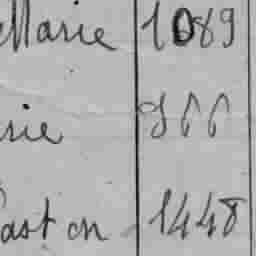 Marie 1089
rie 866
aston 1448